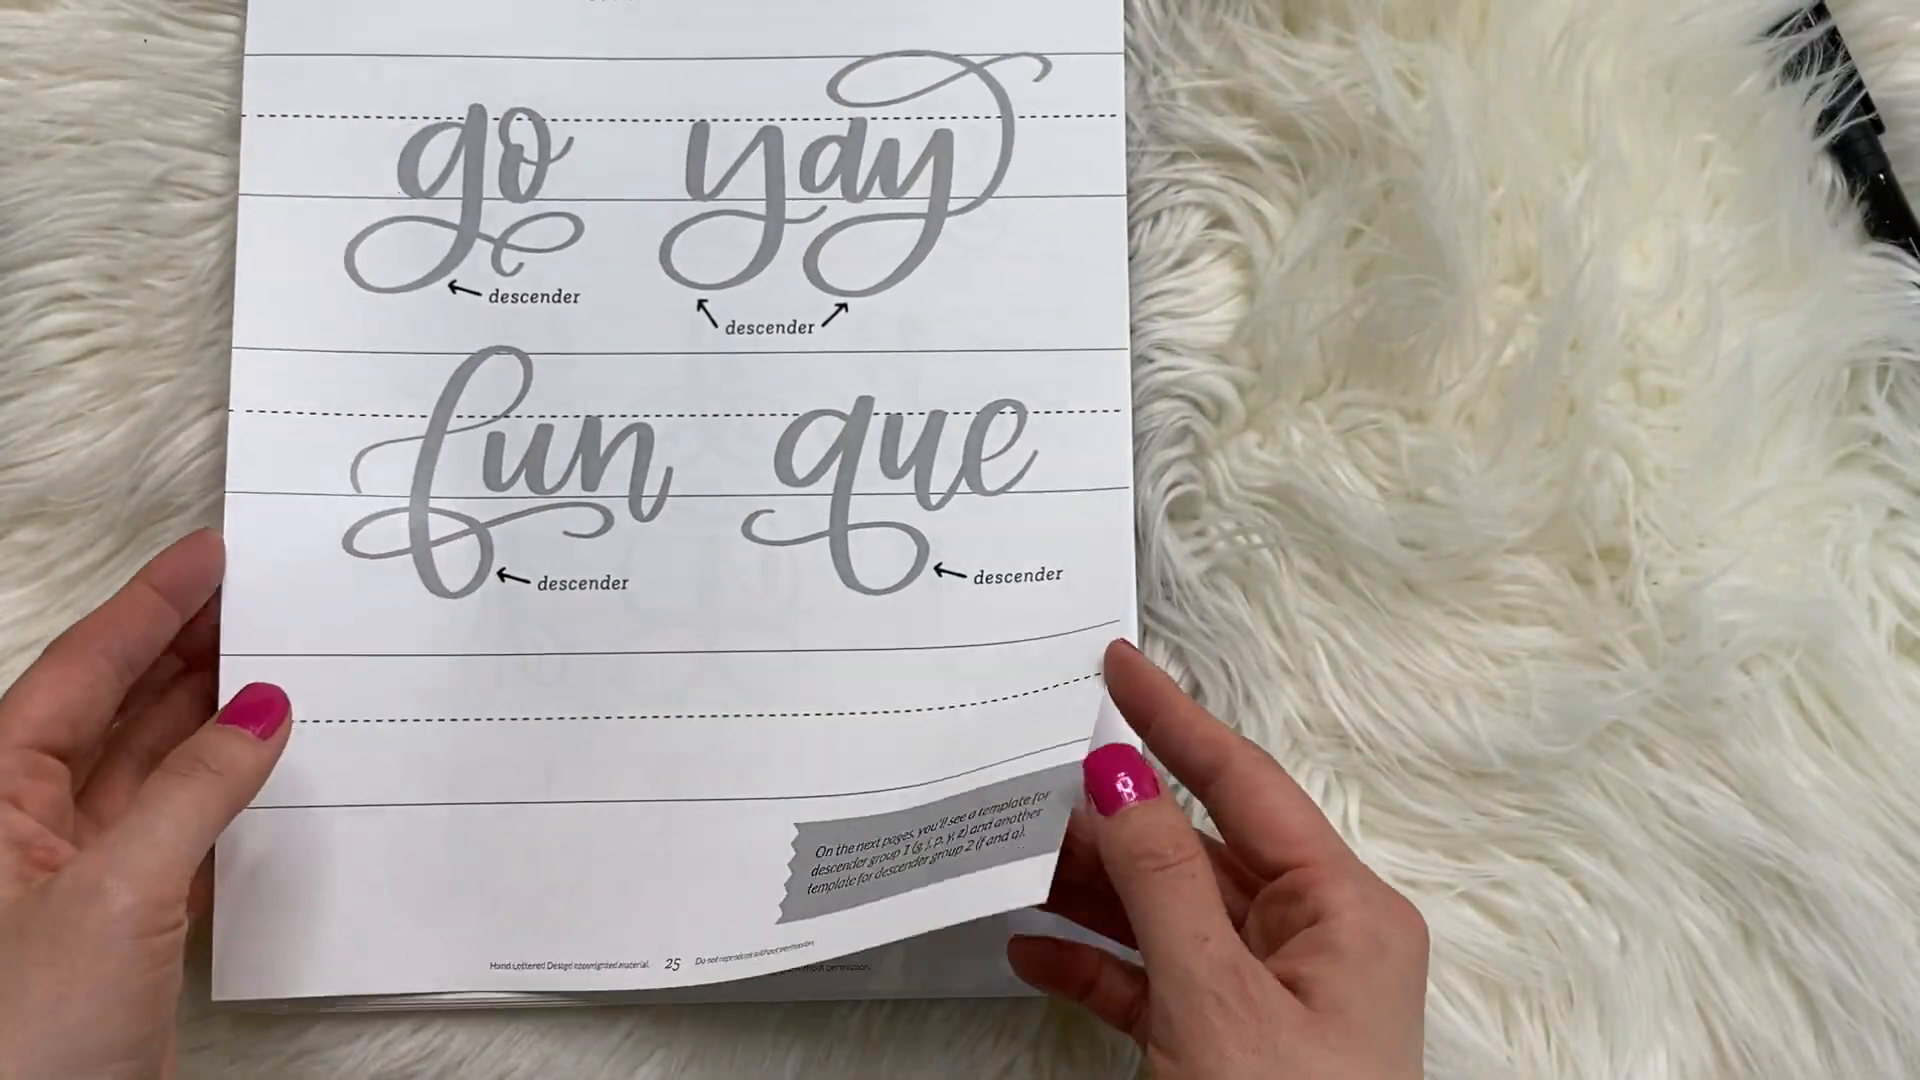 go yay
descender
descender
fun que
descender descender
On the next pages, you'll see a template for
descender group 1 (g, j, p, y, z) and another
template for descender group 2 (f and q).
Hand Lettered Design copyrighted material. 25 Do not reproduce without permission.
without permission.